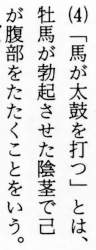 (4)「馬が太鼓を打つ」とは、
牡馬が勃起させた陰茎で己
が腹部をたたくことをいう。